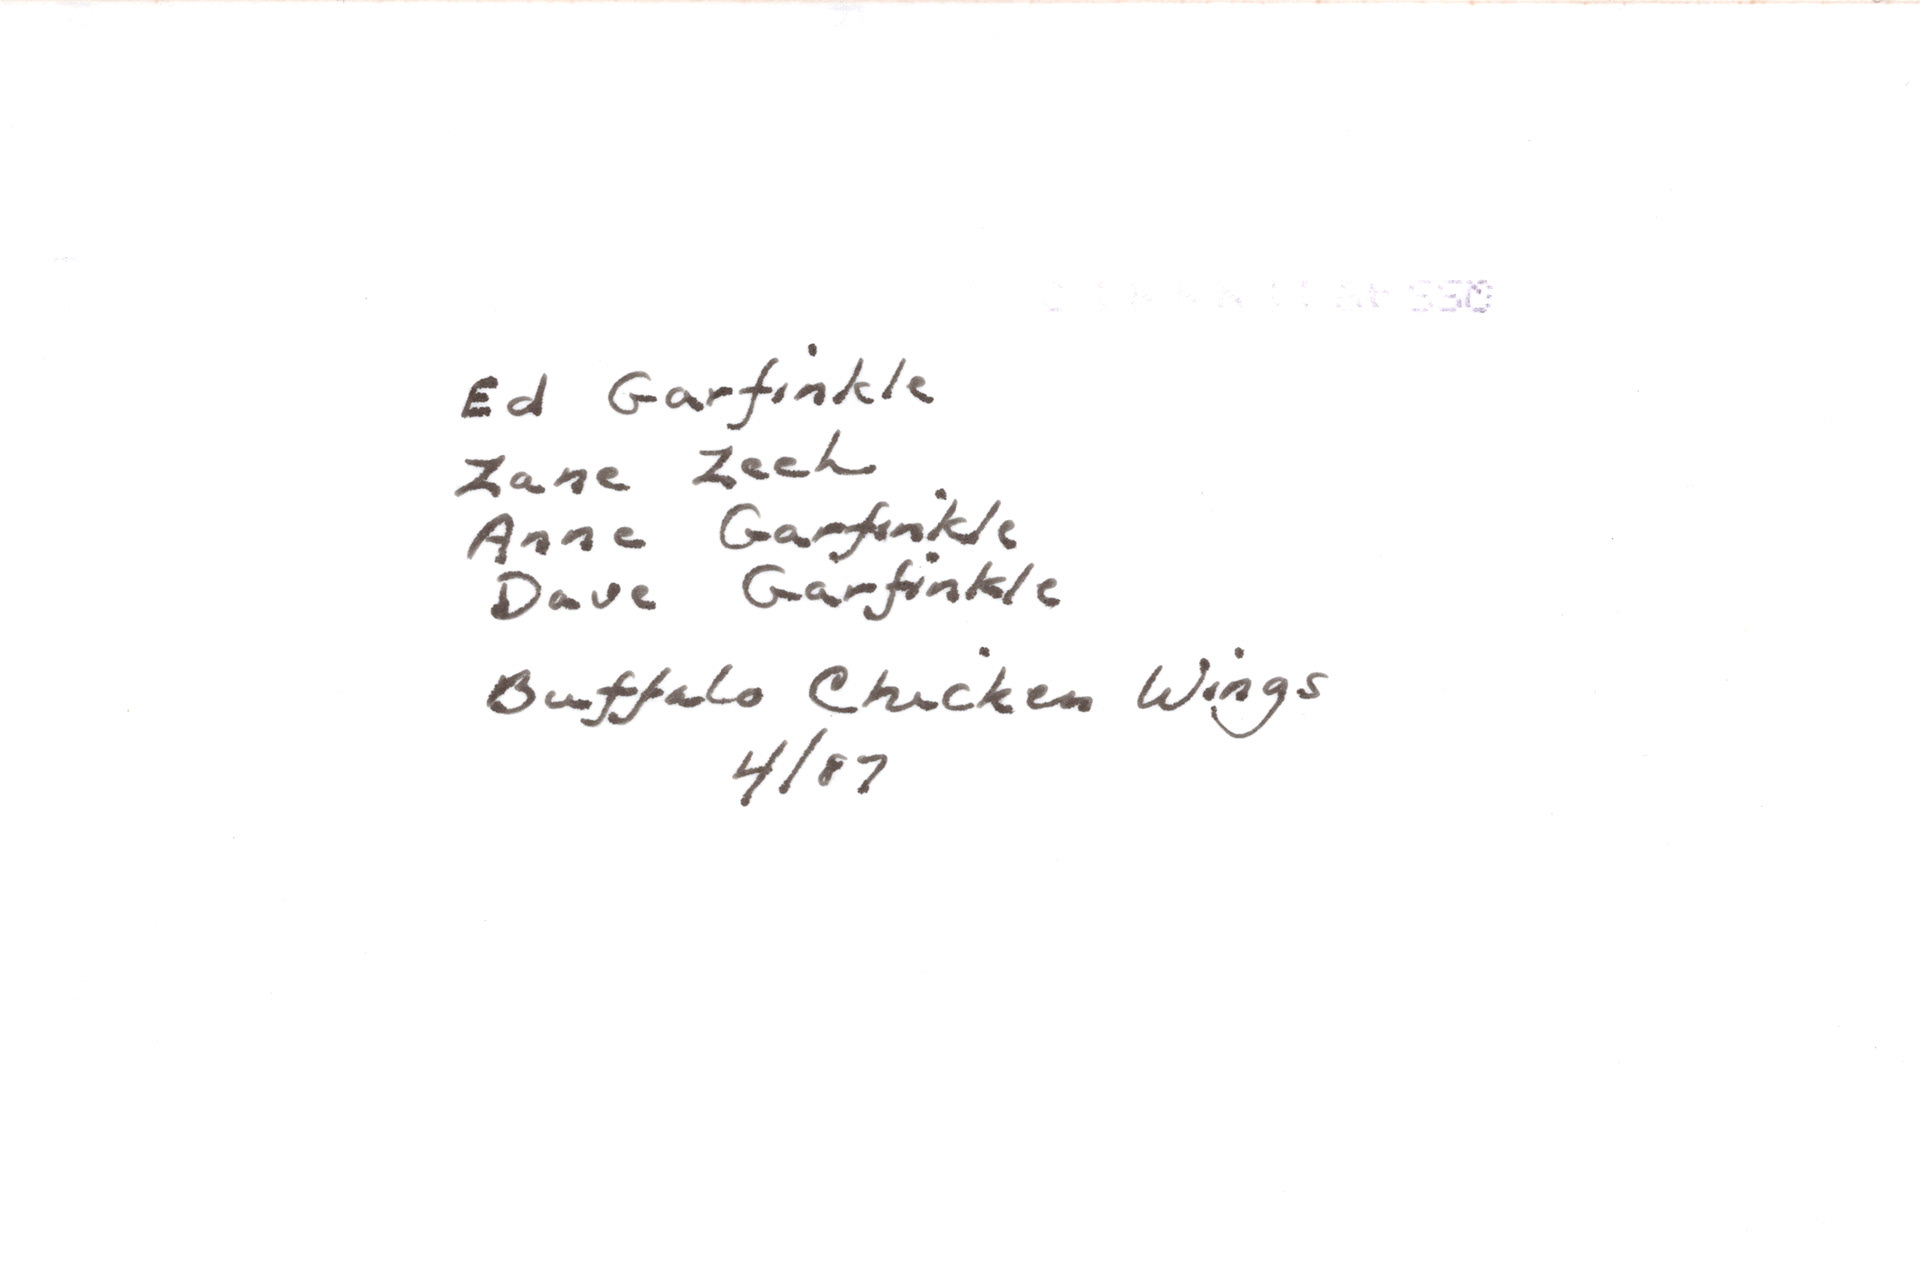 Ed Garfinkle
Zane Zech
Anne Garfinkle
Dave Garfinkle
Buffalo Chicken Wings
4/87